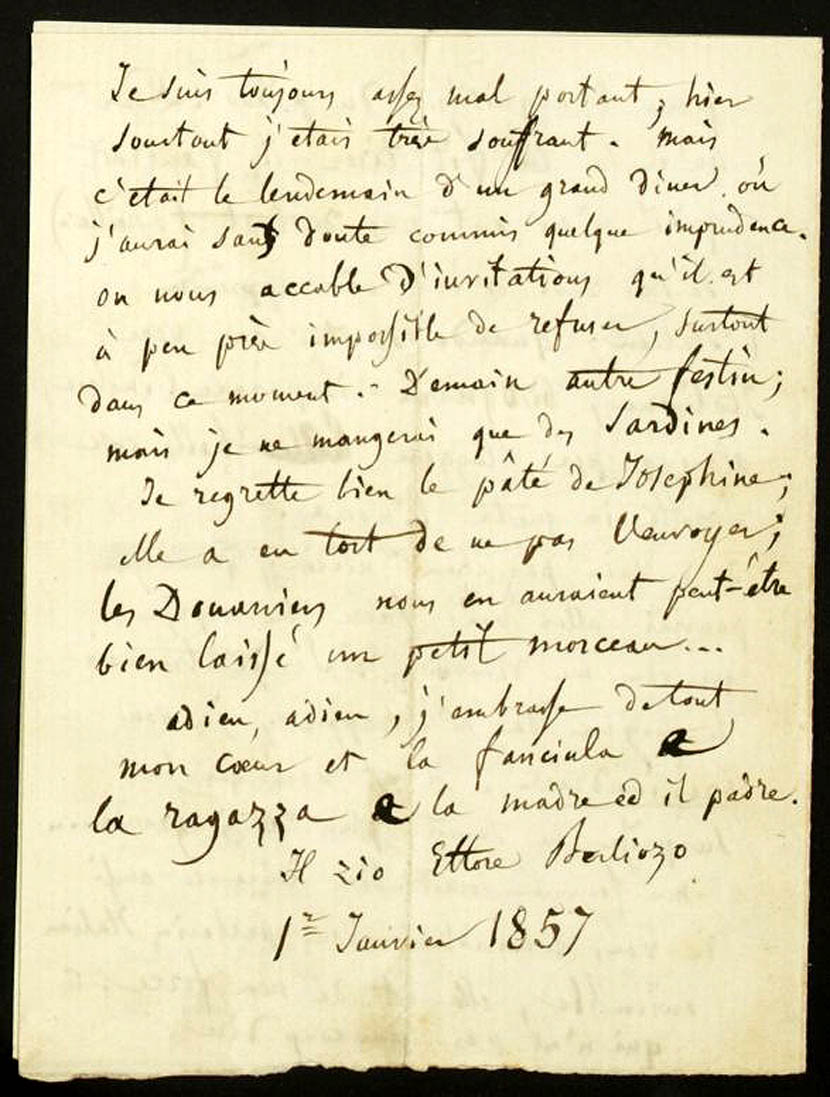 Je suis toujours assez mal portant; hier
surtout j'etais très souffrant. mais
c'etait le lendemain d'un grand diner où
j'aurai sans doute commis quelque imprudence.
on nous accable d'invitations qu'il est
à peu près impossible de refuser, surtout
dans ce moment. - Demain autre festin;
mais je ne mangerai que des Sardines.
Je regrette bien le pâté de Josephine;
elle a eu tort de ne pas l'envoyer;
les Douaniers nous en auraient peut-être
bien laissé un petit morceau...
adieu, adieu, j'embrasse de tout
mon cœur et la fanciula e
la ragazza e la madre ed il padre.
Il zio Ettore Berliozo
1er Janvier 1857